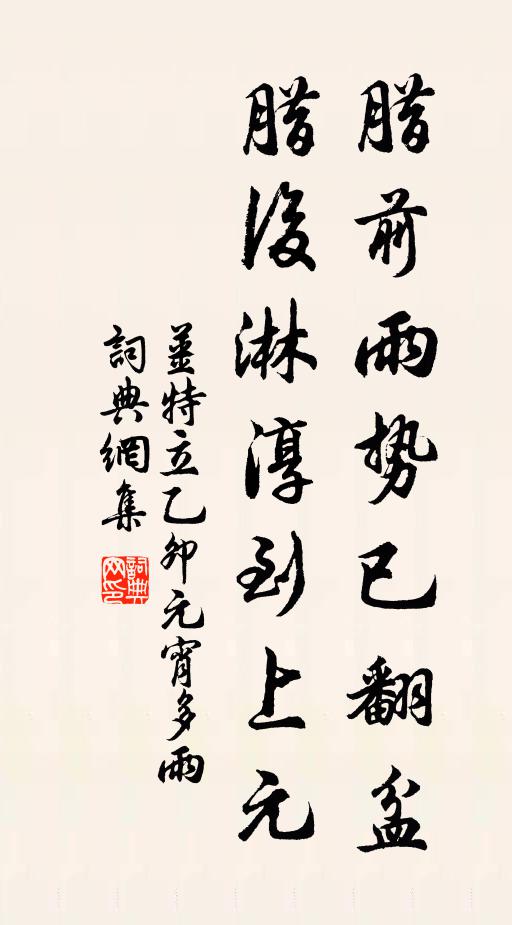 腊前雨势已翻盆
腊後淋淳到上元
姜特立乙卯元宵多雨
詞典網集
詞典网印